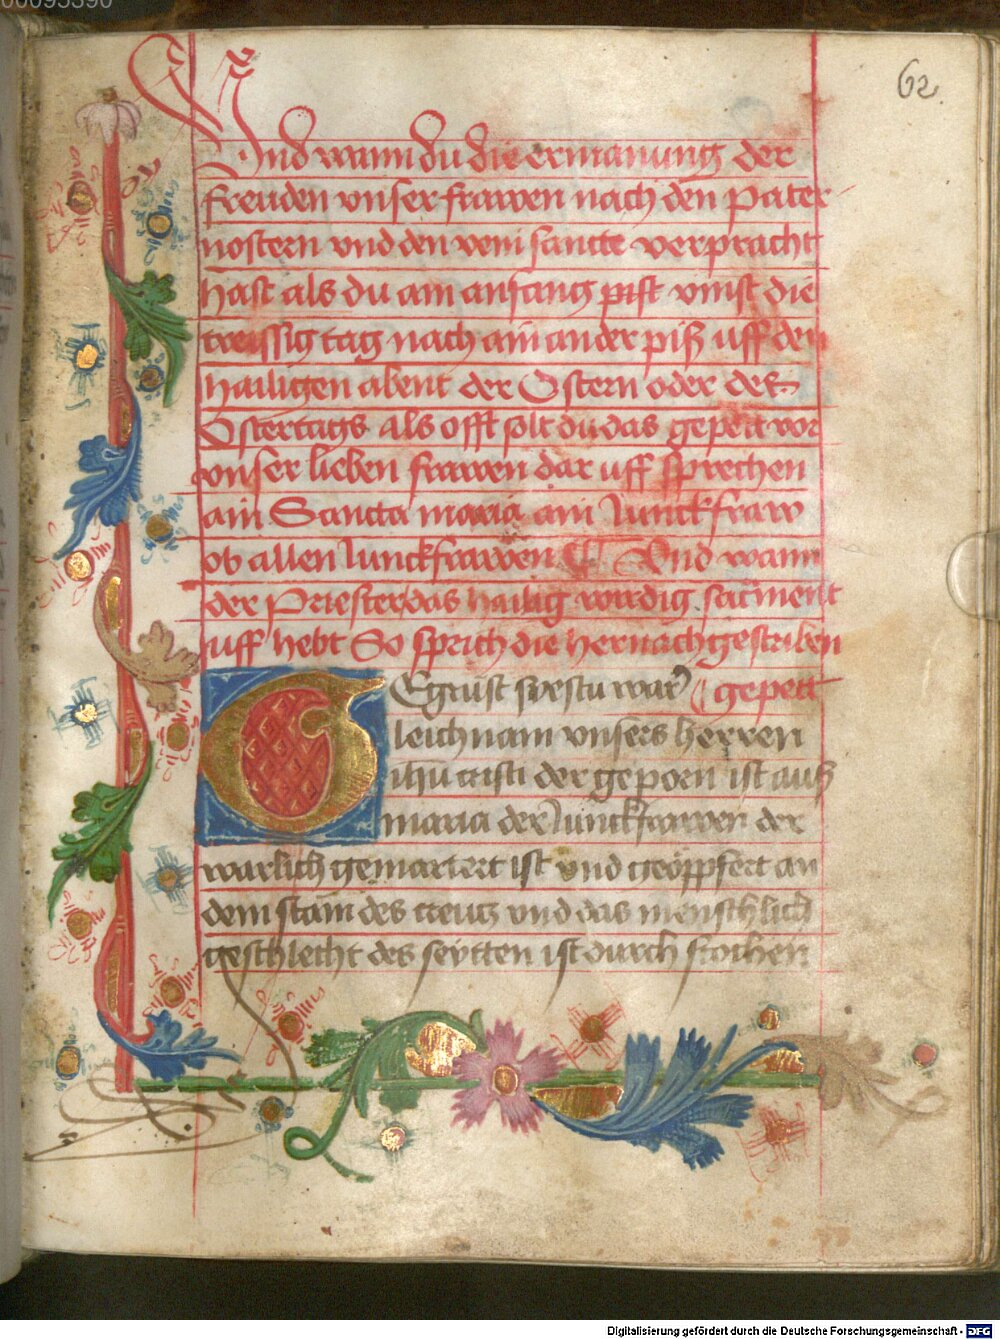 00095390
62
Und wann du die ermanung der
freuden vnser frawen nach den pater
nostern vnd den veni sancte verpracht
hast als du am anfang pist vmst die
treissig tag nach ain ander piß uff den
hailigen abent der Ostern oder des
Ostertags als offt solt du das gepett vor
vnser lieben frawen dar uff sprechen
ain Sancta maria ain Junckfraw
ob allen Junckfrawen Und wann
der Priester das hailig wirdig sacrment
uff hebt So sprich die hernachgestriben
Egrüst pyestu war gepett
leichnam vnsers herren
ihu cristi der geporn ist auß
maria der Junckfrawen der
warlich gemartert ist vnd geöppfert an
dem stam des creutz vnd das menschlich
geschlecht des seytten ist durch stochen
Digitalisierung gefördert durch die Deutsche Forschungsgemeinschaft - DFG